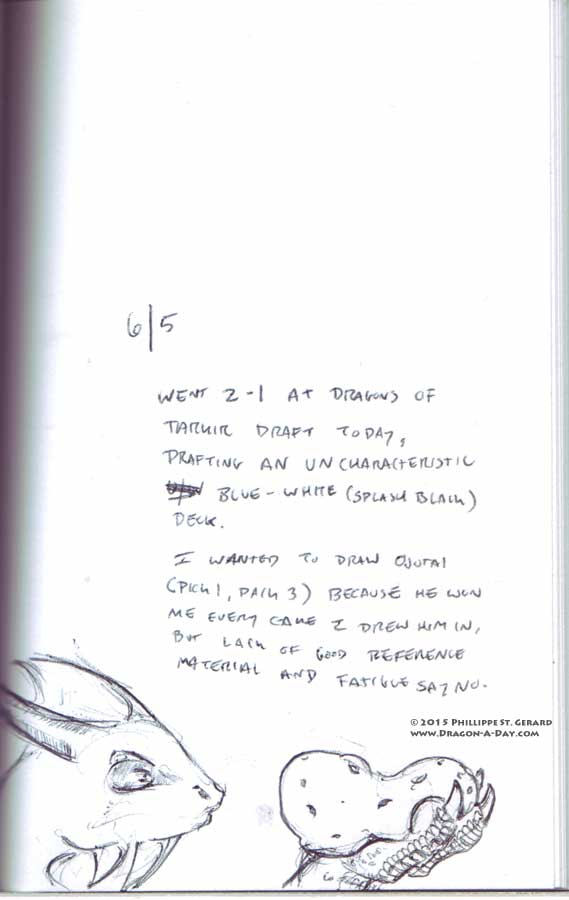 6/5
WENT 2-1 AT DRAGONS OF
TARKIR DRAFT TODAY,
DRAFTING AN UNCHARACTERISTIC
BLUE-WHITE (SPLASH BLACK)
DECK.
I WANTED TO DRAW OJUTAI
(PICK 1, PACK 3) BECAUSE HE WON
ME EVERY GAME I DREW HIM IN,
BUT LACK OF GOOD REFERENCE
MATERIAL AND FATIGUE SAY NO.
© 2015 PHILLIPPE ST. GERARD
WWW.DRAGON-A-DAY.COM